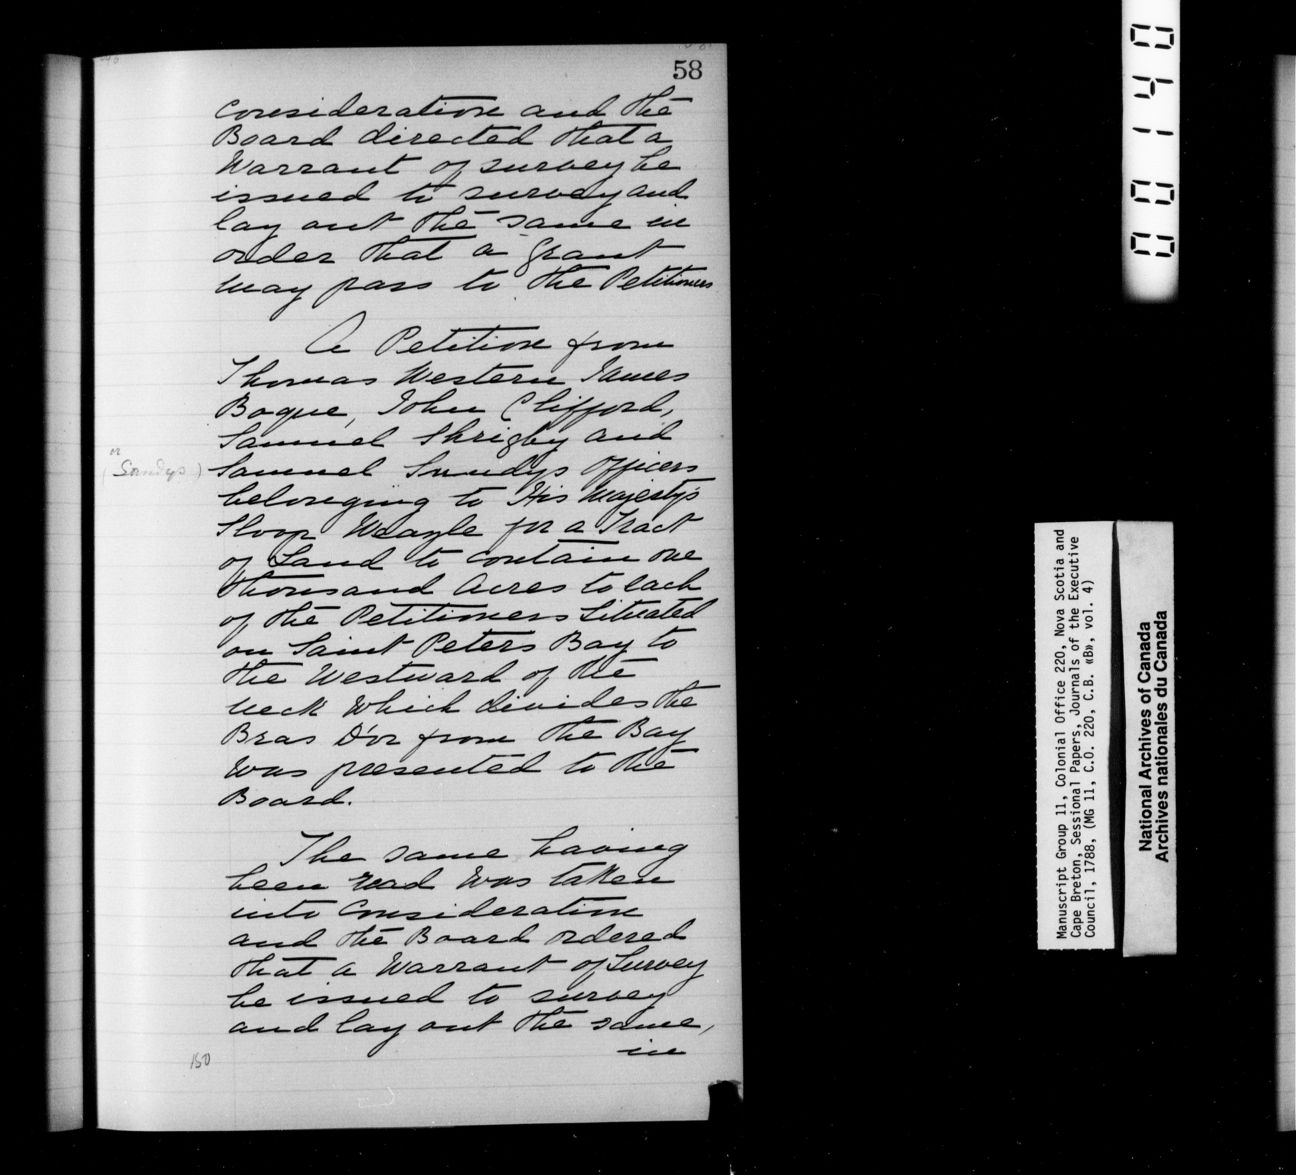 58
consideration and the
Board directed that a
Warrant of survey be
issued to survey and
lay out the same in
order that a Grant
may pass to the Petitioners
A Petition from
Thomas Western James
Bogue, John Clifford,
Samuel Shrigby and
Samuel Sundys Officers
or
(Sandys)
belonging to His Majesty's
Sloop Weazle for a Tract
of Land to contain one
thousand Acres to each
of the Petitioners Situated
on Saint Peters Bay to
the Westward of the
neck which divides the
Bras D'or from the Bay
was presented to the
Board.
The same having
been read was taken
into Consideration
and the Board ordered
that a Warrant of Survey
be issued to survey
and lay out the same,
in
150
00140
Manuscript Group 11, Colonial Office 220, Nova Scotia and
Cape Breton, Sessional Papers, Journals of the Executive
Council, 1788, (MG 11, C.O. 220, C.B. «B», vol. 4)
National Archives of Canada
Archives nationales du Canada